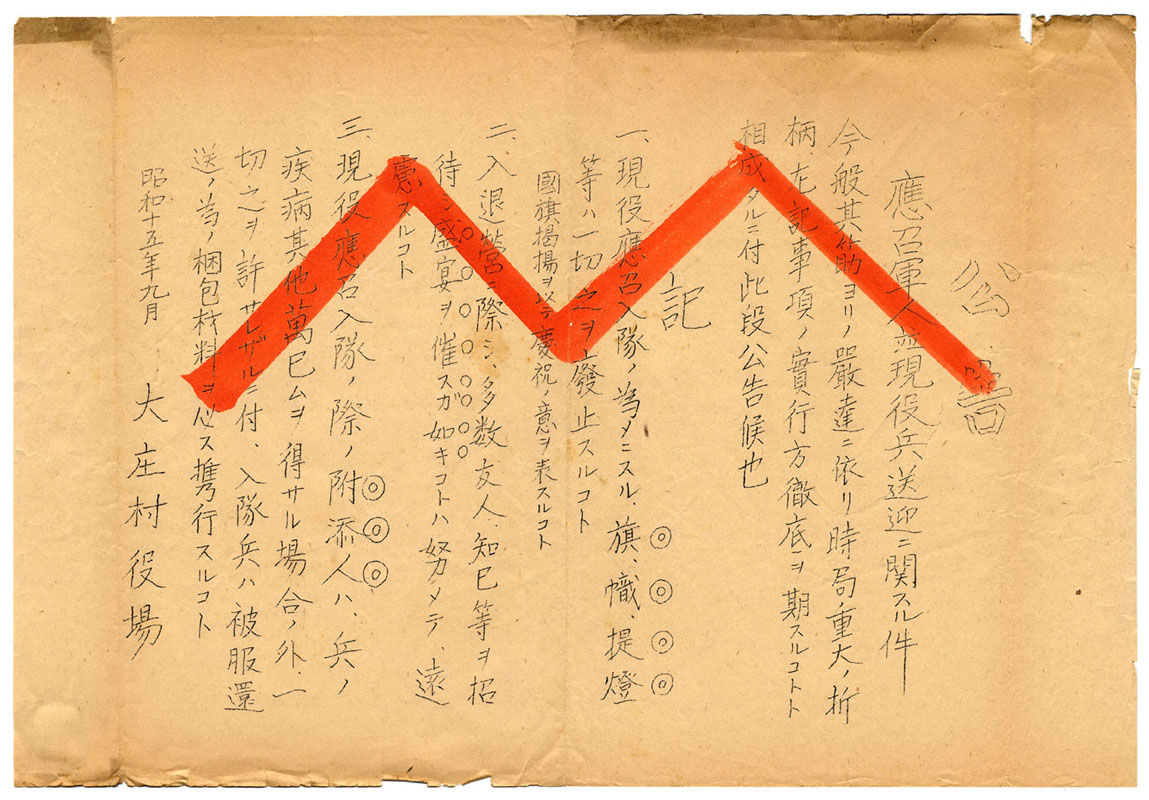 公告
應召軍人並現役兵送迎ニ関スル件
今般其筋ヨリノ嚴達ニ依リ時局重大ノ折
柄、左記事項ノ實行方徹底ヲ期スルコトト
相成タルニ付此段公告候也
記
一、現役應召入隊ノ為メニスル、旗、幟、提燈
等ハ一切之ヲ廢止スルコト
國旗掲揚ヲ以テ慶祝ノ意ヲ表スルコト
二、入退営ニ際シ、多数友人、知已等ヲ招
待シ盛宴ヲ催スガ如キコトハ努メテ、遠
慮スルコト
三、現役應召入隊ノ際ノ附添人ハ、兵ノ
疾病其他萬已ムヲ得サル場合ノ外、一
切之ヲ許サレザルニ付、入隊兵ハ被服還
送ノ為ノ梱包材料ヲ必ス携行スルコト
昭和十五年九月
大庄村役場